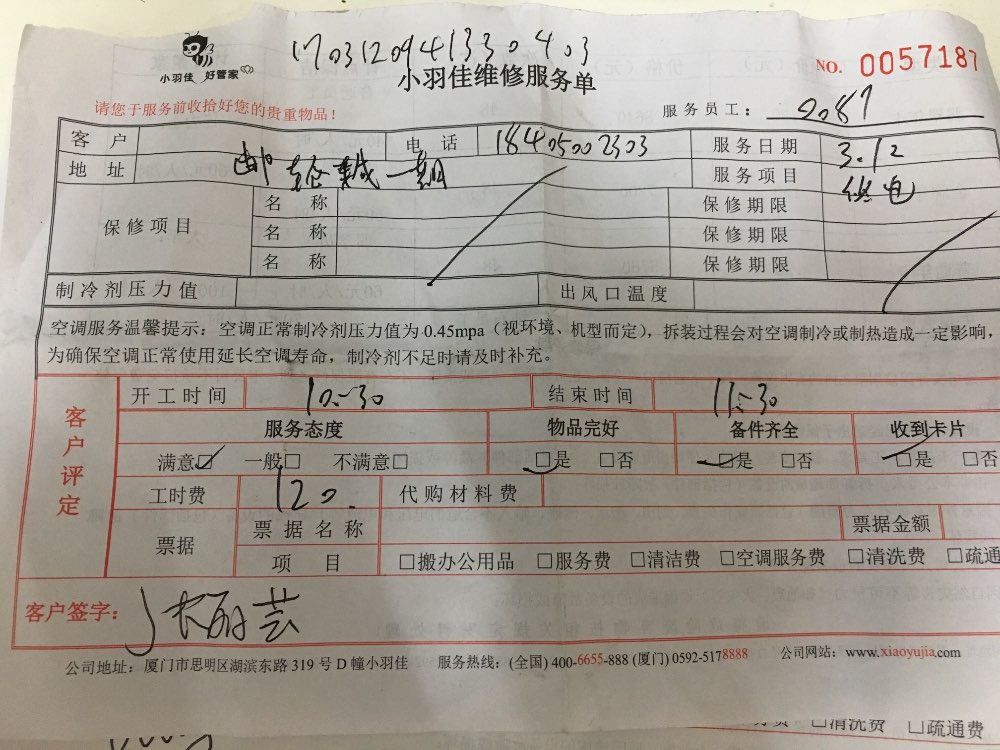 1703120941330403
小羽佳 好管家
小羽佳维修服务单
NO. 0057187
请您于服务前收拾好您的贵重物品！
服务员工： 2087
客户 电话 18405002303 服务日期 3.12
地址 一期 服务项目 电
保修项目 名称 保修期限
名称 保修期限
名称 保修期限
制冷剂压力值 出风口温度
空调服务温馨提示：空调正常制冷剂压力值为0.45mpa（视环境、机型而定），拆装过程会对空调制冷或制热造成一定影响，
为确保空调正常使用延长空调寿命，制冷剂不足时请及时补充。
客户评定
开工时间 10:30 结束时间 11:30
服务态度 物品完好 备件齐全 收到卡片
满意☑ 一般□ 不满意□ ☑是 □否 ☑是 □否 ☑是 □否
工时费 120. 代购材料费
票据 票据名称 票据金额
项目 □搬办公用品 □服务费 □清洁费 □空调服务费 □清洗费 □疏通
客户签字： 张丽芸
公司地址：厦门市思明区湖滨东路319号D幢小羽佳 服务热线：(全国) 400-6655-888 (厦门) 0592-5178888 公司网站：www.xiaoyujia.com
□清洗费 □疏通费